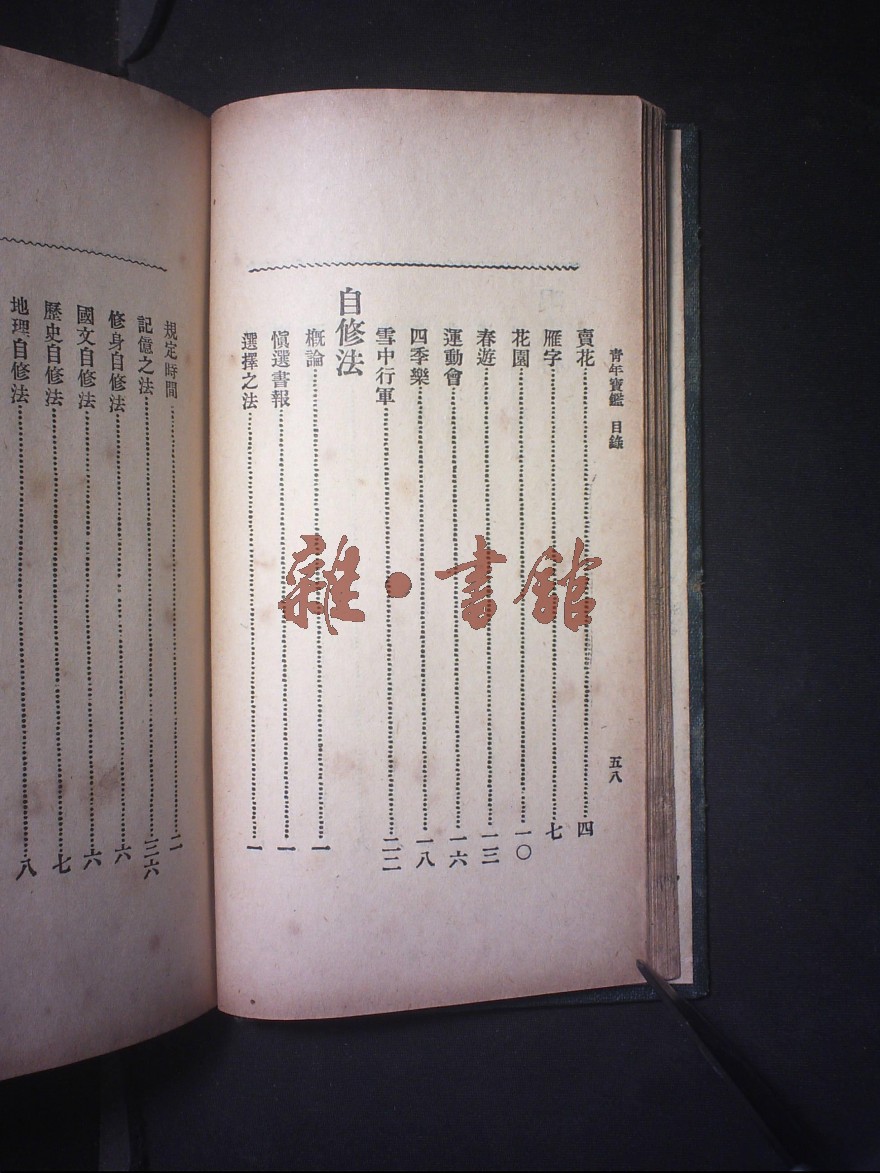 青年寶鑑 目錄 五八
賣花 四
雁字 七
花園 一〇
春遊 一三
運動會 一六
四季樂 一八
雪中行軍 二二
自修法
概論 一
慎選書報 一
選擇之法 一
規定時間 二
記憶之法 三六
修身自修法 六
國文自修法 六
歷史自修法 七
地理自修法 八
雜·書館